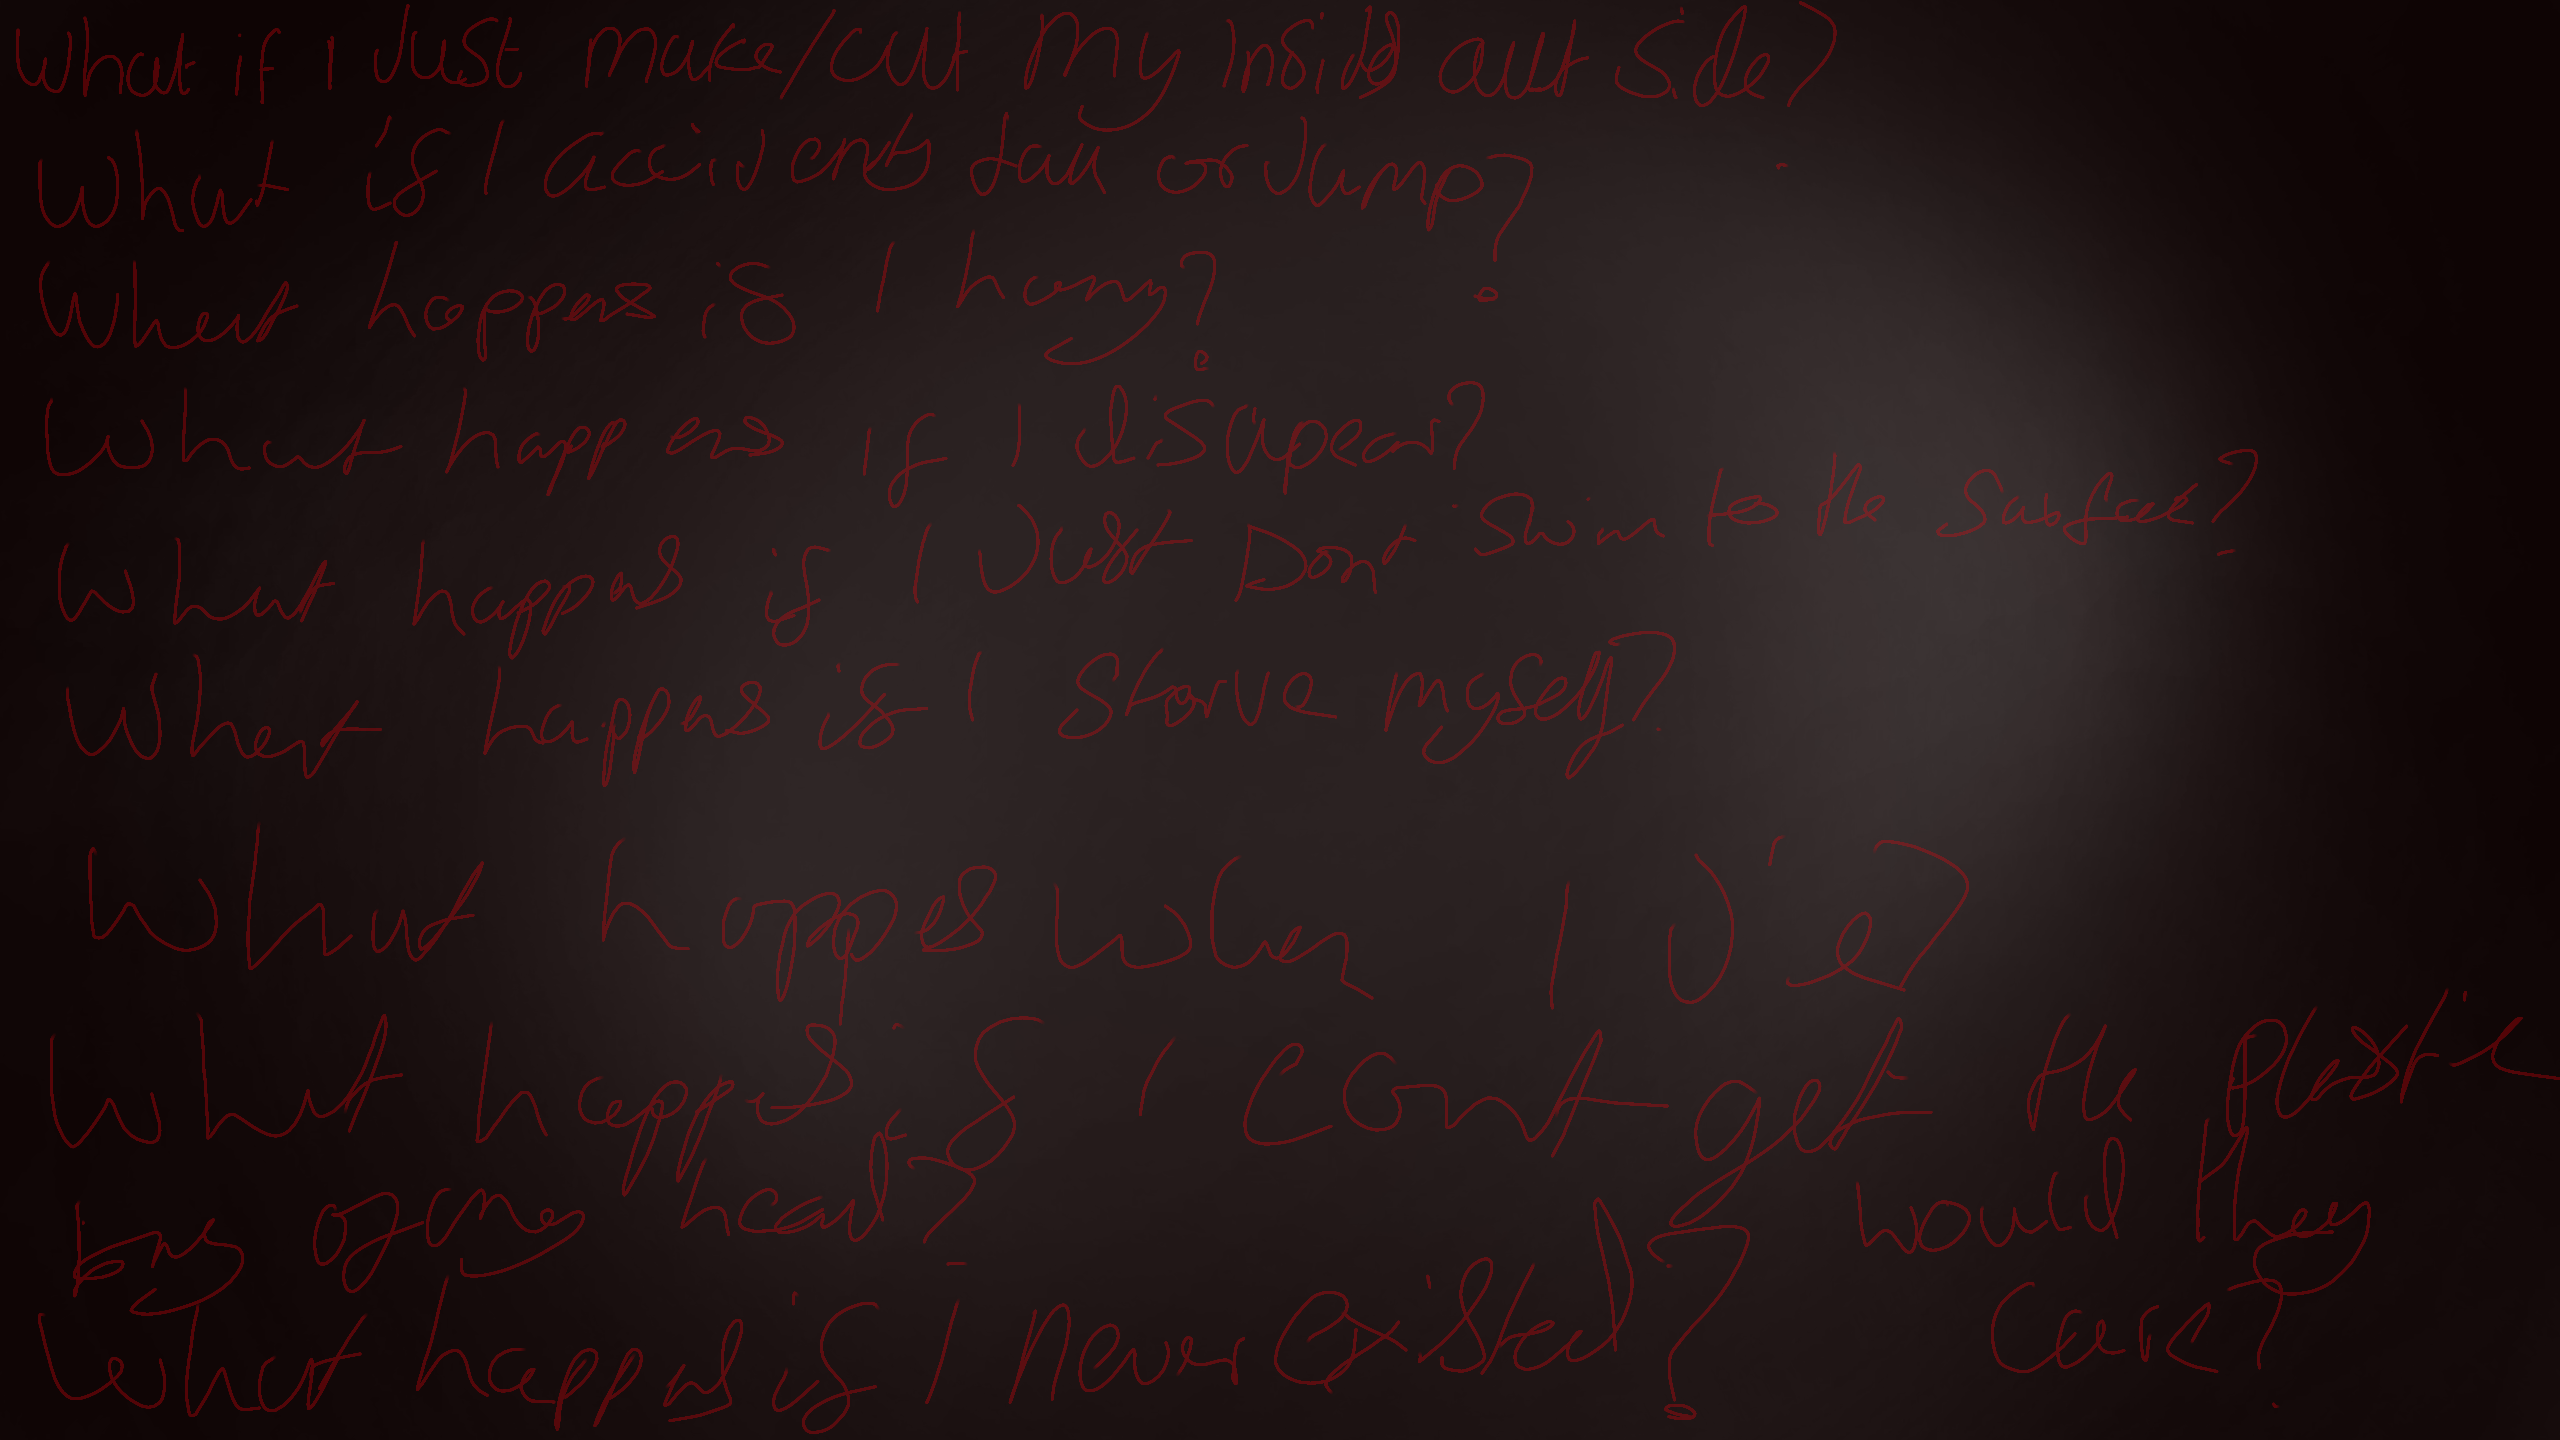 What if I Just make/cut my inside out side?
What if I accidents fall or Jump?
What happens if I hang?
What happens if I disapear?
What happens if I Just Dont swim to the surface?
What happens if I starve myself?
What happes when I Die?
What happes if I cont get the plastic
bag of my head?
would they
care?
What happens if I never existed?